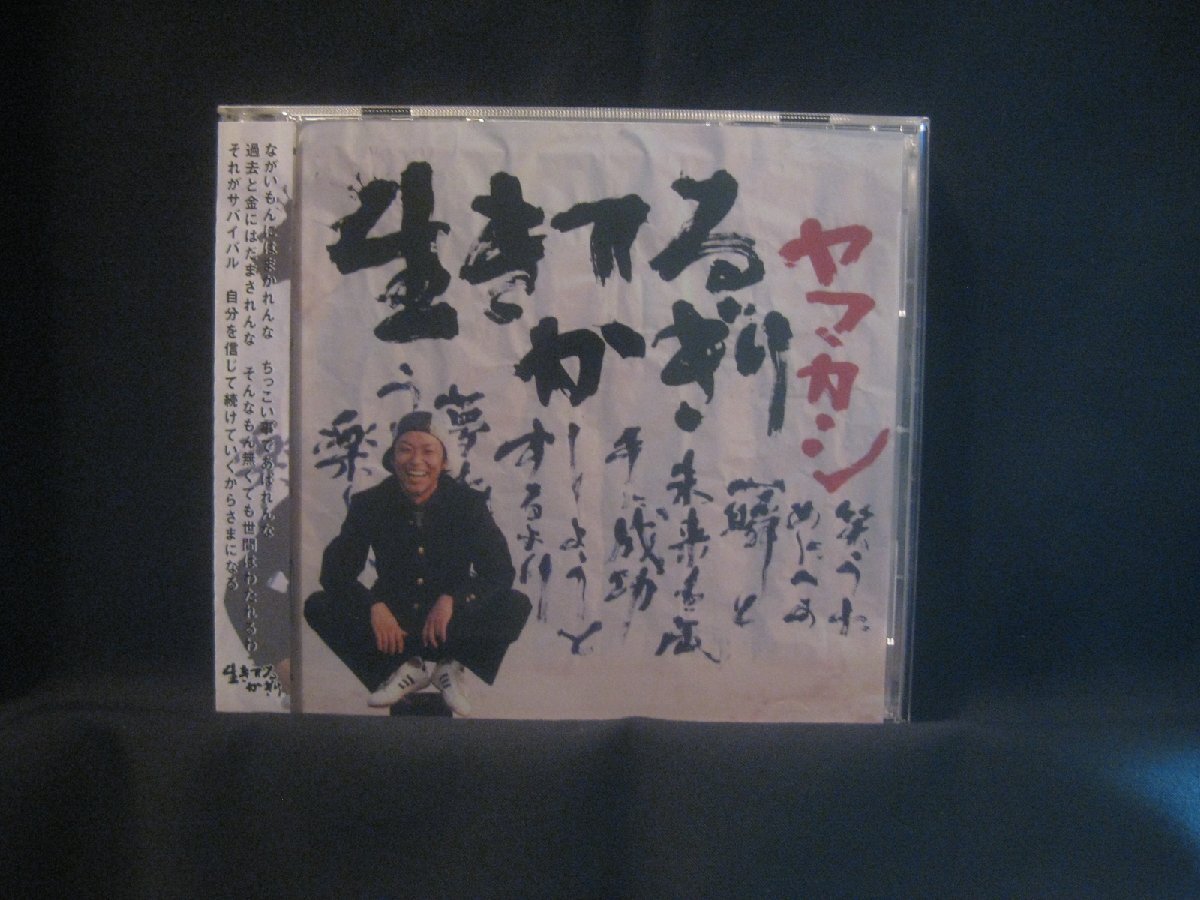 生きてる
かぎり
ヤマカシ
笑うか
一瞬と
未来を
手に成功
しようと
するより
夢
う
楽
ながいもんにはまかれんな ちっこい事であばれんな
過去と金にはだまされんな そんなもん無くても世間はわたれるわ
それがサバイバル 自分を信じて続けていくからさまになる
生きてる
かぎり